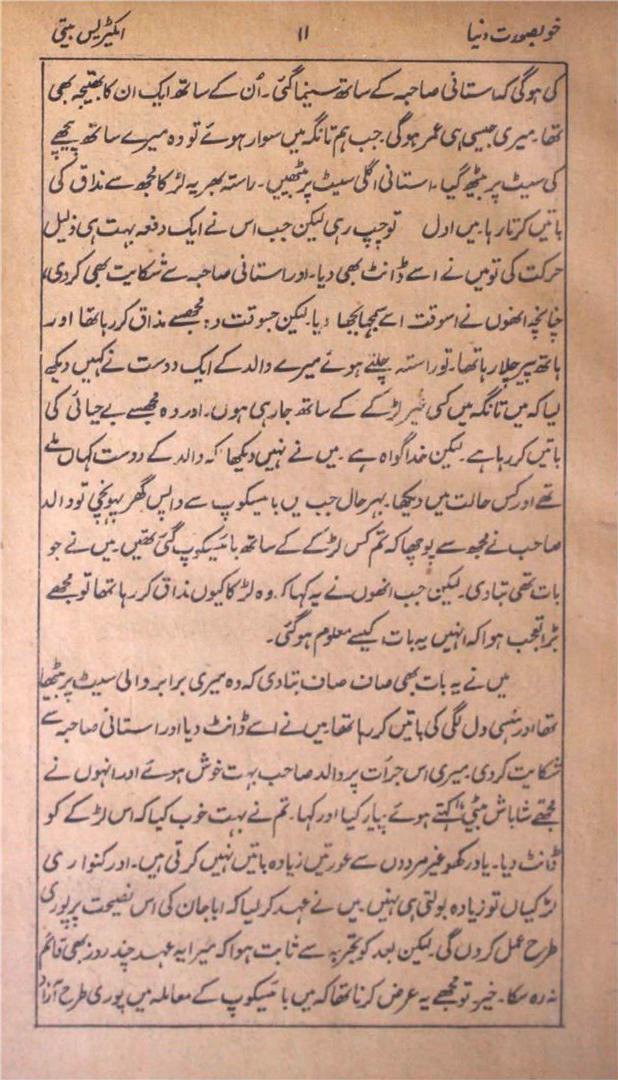 خوبصورت دنیا ۱۱ ایکٹریس بیتی
کی ہوگی کہ استانی صاحبہ کے ساتھ سینما گئی۔ اُن کے ساتھ ایک ان کا بھتیجہ بھی
تھا۔ میری جیسی ہی عمر ہوگی۔ جب ہم تانگہ میں سوار ہوئے تو وہ میرے ساتھ پیچھے
کی سیٹ پر بیٹھ گیا۔ استانی اگلی سیٹ پر بیٹھیں۔ راستہ بھر یہ لڑکا مجھ سے مذاق کی
باتیں کرتا رہا۔ میں اول تو چپ رہی لیکن جب اس نے ایک دفعہ بہت ہی ذلیل
حرکت کی تو میں نے اسے ڈانٹ بھی دیا۔ اور استانی صاحبہ سے شکایت بھی کردی،
چنانچہ انھوں نے اسوقت اسے سمجھا بجھا دیا۔ لیکن جسوقت وہ مجھسے مذاق کر رہا تھا اور
ہاتھ پیر چلا رہا تھا۔ تو راستہ چلتے ہوئے میرے والد کے ایک دوست نے کہیں دیکھ
لیا کہ میں تانگہ میں کسی غیر لڑکے کے ساتھ جا رہی ہوں۔ اور وہ مجھسے بے حیائی کی
باتیں کر رہا ہے۔ لیکن خدا گواہ ہے۔ میں نے نہیں دیکھا کہ والد کے دوست کہاں ملے
تھے اور کس حالت میں دیکھا۔ بہرحال جب میں بائیسکوپ سے واپس گھر پہونچی تو والد
صاحب نے مجھ سے پوچھا کہ تم کس لڑکے کے ساتھ بائیسکوپ گئی تھیں۔ میں نے جو
بات تھی بتادی۔ لیکن جب انھوں نے یہ کہا کہ وہ لڑکا کیوں مذاق کر رہا تھا تو مجھے
بڑا تعجب ہوا کہ انہیں یہ بات کیسے معلوم ہوگئی۔
میں نے یہ بات بھی صاف صاف بتادی کہ وہ میری برابر والی سیٹ پر بیٹھا
تھا اور ہنسی دل لگی کی باتیں کر رہا تھا۔ میں نے اسے ڈانٹ دیا اور استانی صاحبہ سے
شکایت کردی۔ میری اس جرأت پر والد صاحب بہت خوش ہوئے اور انہوں نے
مجھے شاباش بیٹی" کہتے ہوئے پیار کیا اور کہا۔ تم نے بہت خوب کیا کہ اس لڑکے کو
ڈانٹ دیا۔ یاد رکھو غیر مردوں سے عورتیں زیادہ باتیں نہیں کرتی ہیں۔ اور کنواری
لڑکیاں تو زیادہ بولتی ہی نہیں۔ میں نے عہد کر لیا کہ ابا جان کی اس نصیحت پر پوری
طرح عمل کروں گی۔ لیکن بعد کو تجربہ سے ثابت ہوا کہ میرا یہ عہد چند روز بھی قائم
نہ رہ سکا۔ خیر تو مجھے یہ عرض کرنا تھا کہ میں بائیسکوپ کے معاملہ میں پوری طرح آزاد